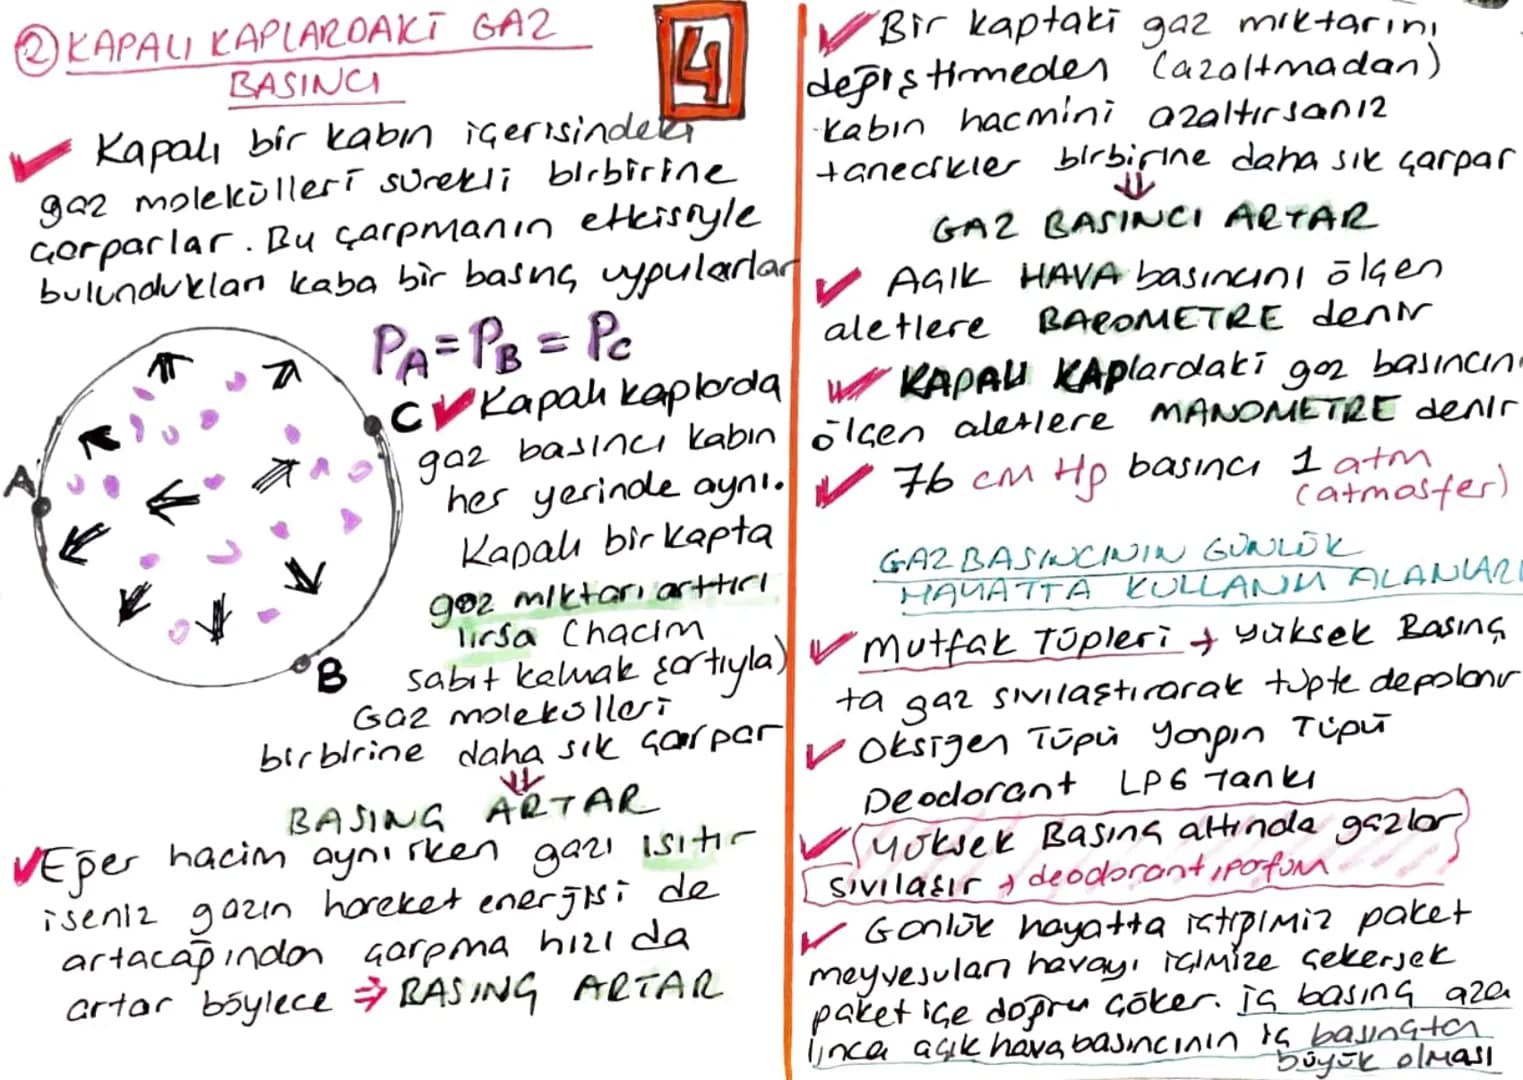 ② KAPALI KAPLARDAKİ GAZ
BASINCI
4
✓ Kapalı bir kabın içerisindeki
gaz molekülleri sürekli birbirine
çarparlar. Bu çarpmanın etkisiyle
bulundukları kaba bir basınç uygularlar
PA = PB = PC
A
B
C
✓ Kapalı kaplarda
gaz basıncı kabın
her yerinde aynı.
Kapalı bir kapta
gaz miktarı arttırı
lırsa (hacim
sabit kalmak şartıyla)
Gaz molekülleri
birbirine daha sık çarpar
⇓
BASINÇ ARTAR
✓ Eğer hacim aynı iken gazı ısıtır
iseniz gazın hareket enerjisi de
artacağından çarpma hızı da
artar böylece ⇒ BASINÇ ARTAR
✓ Bir kaptaki gaz miktarını
değiştirmeden (azaltmadan)
kabın hacmini azaltırsanız
tanecikler birbirine daha sık çarpar
⇓
GAZ BASINCI ARTAR
✓ Açık HAVA basıncını ölçen
aletlere BAROMETRE denir
✓ KAPALI KAPlardaki gaz basıncın
ölçen aletlere MANOMETRE denir
✓ 76 cm Hg basıncı 1 atm
(atmosfer)
GAZ BASINCININ GÜNLÜK
HAYATTA KULLANIM ALANLARI
✓ Mutfak Tüpleri → Yüksek Basınç
ta gaz sıvılaştırarak tüpte depolanır
✓ Oksijen Tüpü Yangın Tüpü
Deodorant LPG Tankı
✓ Yüksek Basınç altında gazlar
sıvılaşır → deodorant, parfüm
✓ Günlük hayatta içtiğimiz paket
meyvesuları havayı içimize çekersek
paket içe doğru çöker. iç basınç aza
lınca açık hava basıncının iç basınçtan
büyük olması